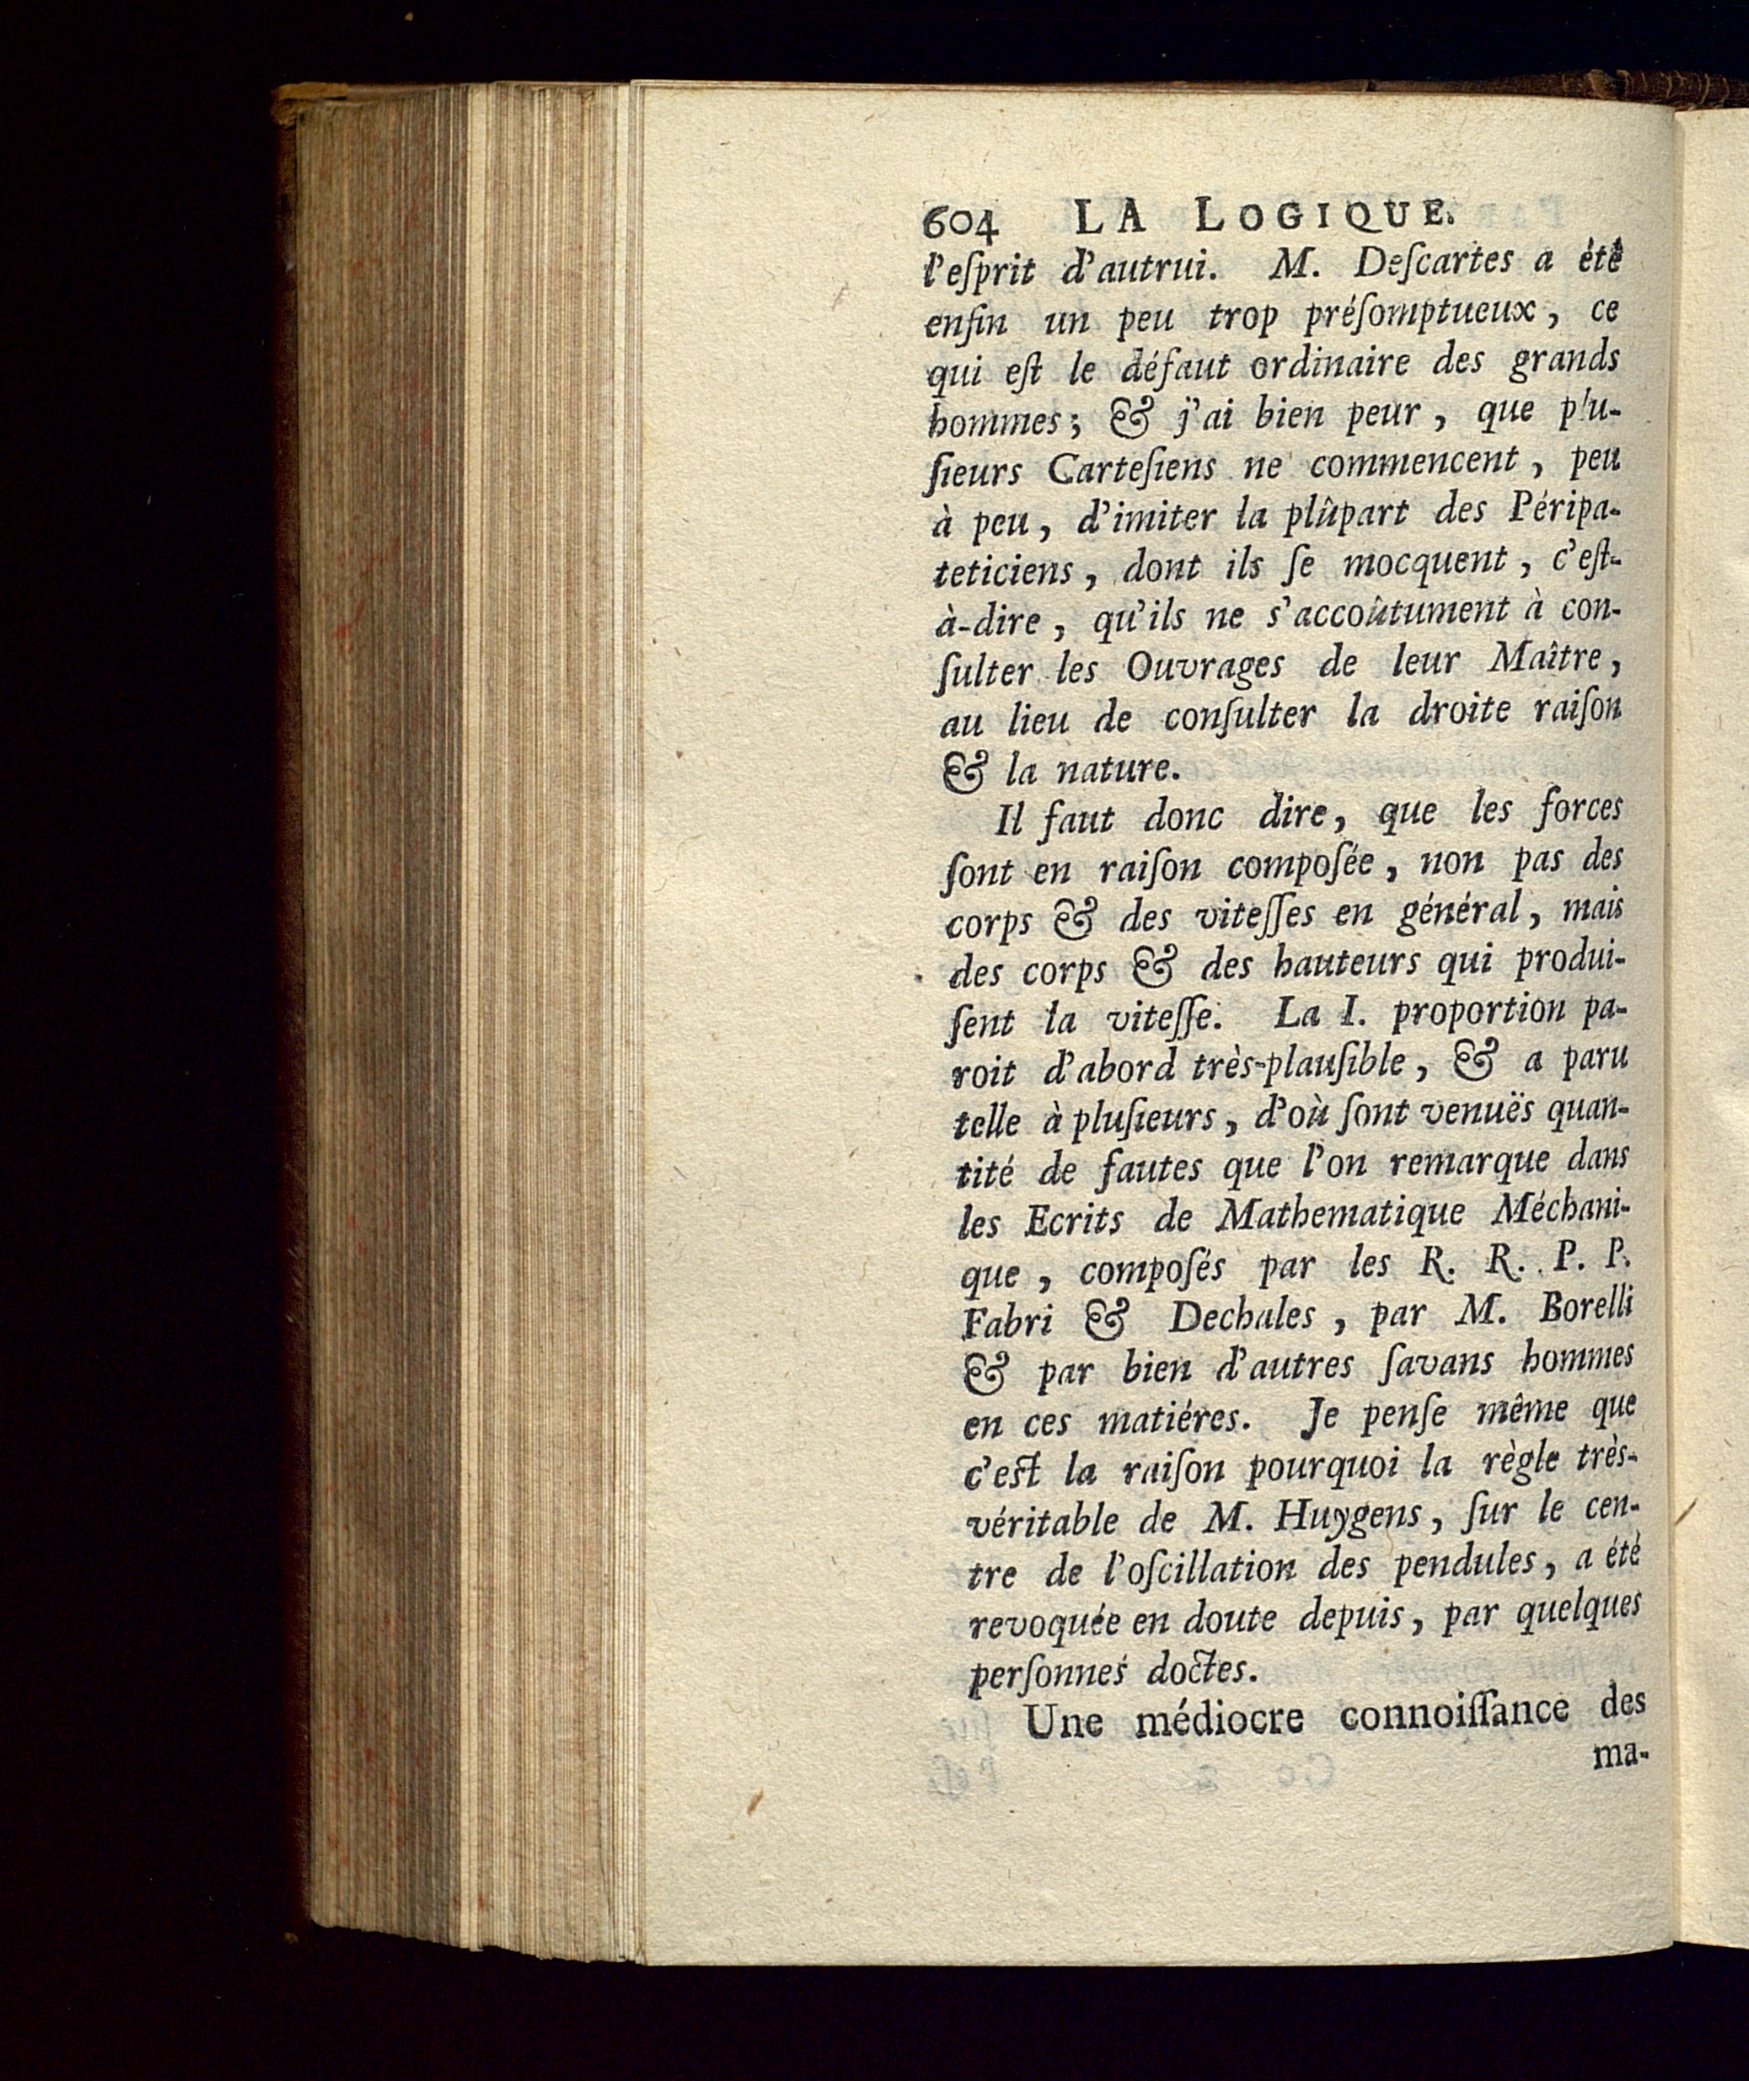 604 LA LOGIQUE.
l'eſprit d'autrui. M. Deſcartes a été
enfin un peu trop préſomptueux, ce
qui eſt le défaut ordinaire des grands
hommes; & j'ai bien peur, que plu-
ſieurs Carteſiens ne commencent, peu
à peu, d'imiter la plûpart des Péripa-
teticiens, dont ils ſe mocquent, c'eſt-
à-dire, qu'ils ne s'accoûtument à con-
ſulter les Ouvrages de leur Maître,
au lieu de conſulter la droite raiſon
& la nature.
Il faut donc dire, que les forces
ſont en raiſon compoſée, non pas des
corps & des viteſſes en général, mais
des corps & des hauteurs qui produi-
ſent la viteſſe. La I. proportion pa-
roit d'abord très-plauſible, & a paru
telle à pluſieurs, d'où ſont venuës quan-
tité de fautes que l'on remarque dans
les Ecrits de Mathematique Méchani-
que, compoſés par les R. R. P. P.
Fabri & Dechales, par M. Borelli
& par bien d'autres ſavans hommes
en ces matiéres. Je penſe même que
c'est la raiſon pourquoi la règle très-
véritable de M. Huygens, ſur le cen-
tre de l'oſcillation des pendules, a été
revoquée en doute depuis, par quelques
perſonnes doctes.
Une médiocre connoiſſance des
ma-